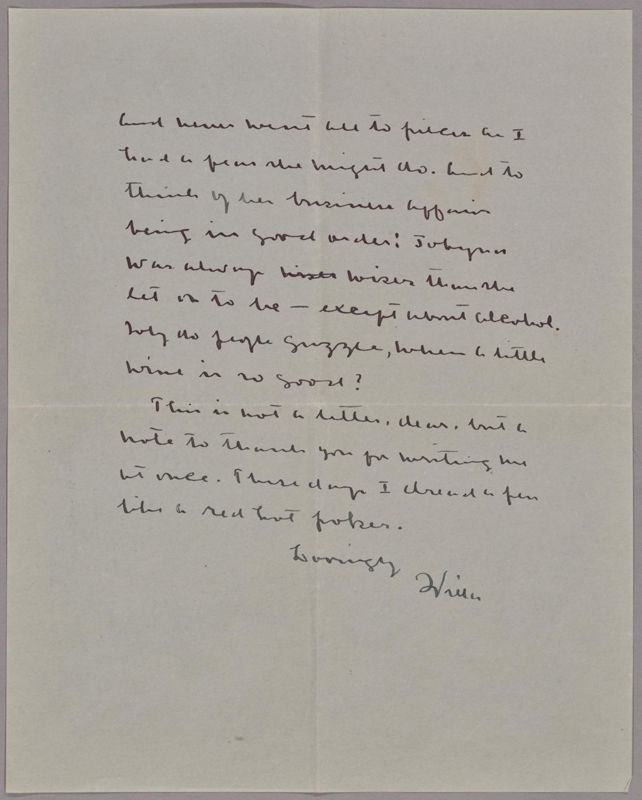 and never went all to pieces as I
had a fear she might do. And to
think of her business affairs
being in good order! Jobyna
was always wiser than she
let on to be — except about alcohol.
Why do people guzzle, when a little
wine is so good?
This is not a letter, dear, but a
note to thank you for writing me
at once. These days I dread a pen
like a red hot poker.
Lovingly
Willa